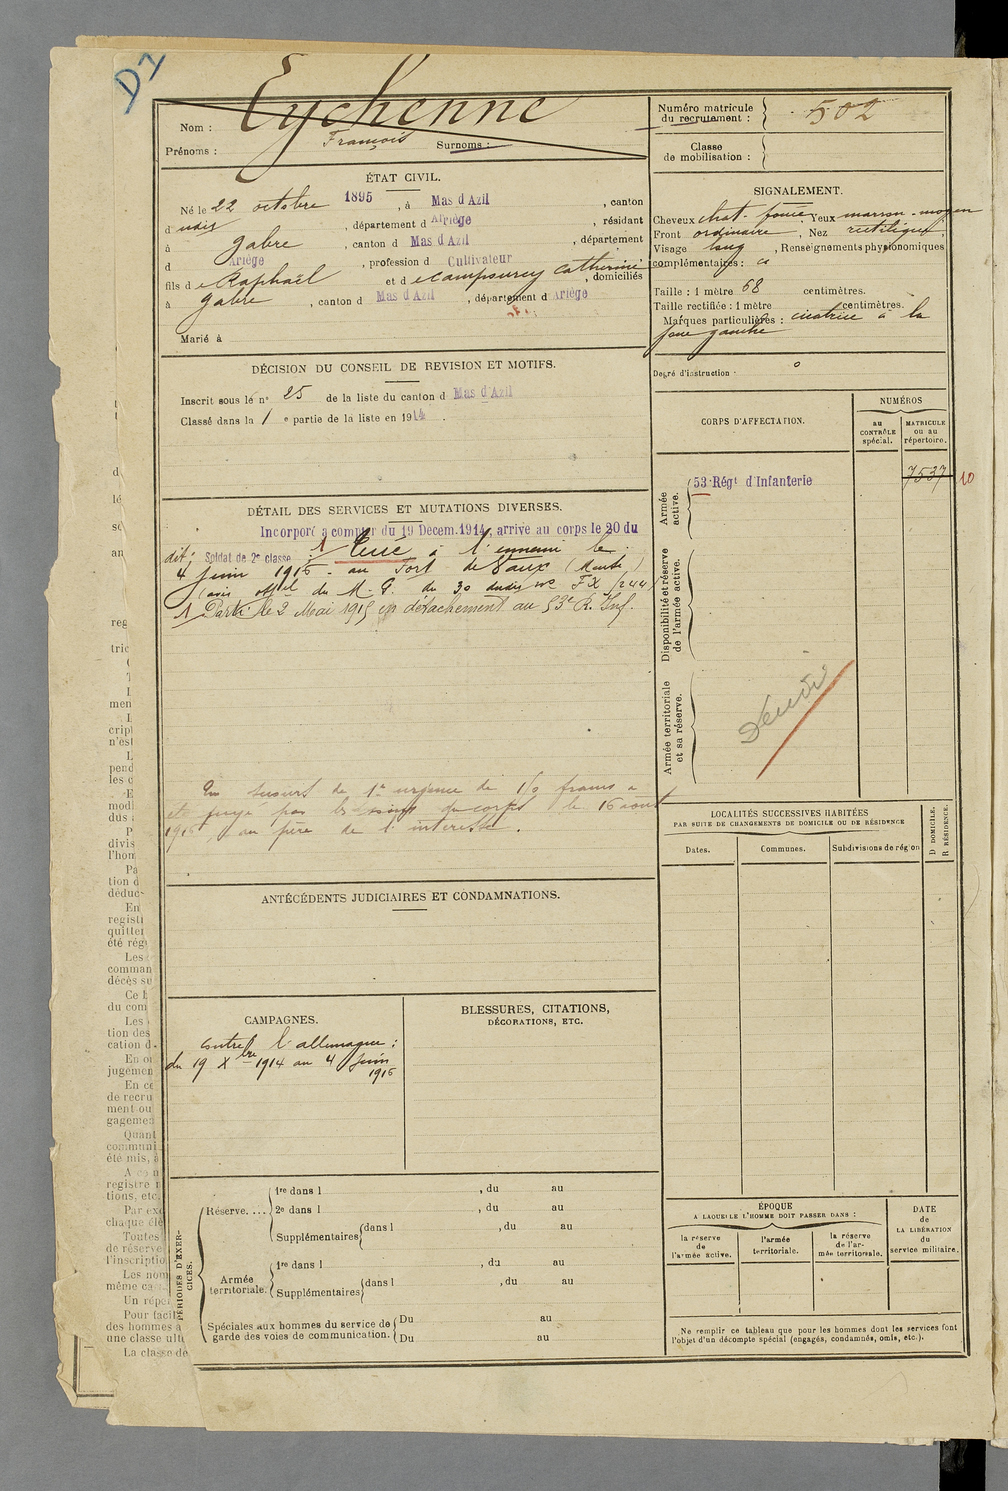 D1
Nom : Eychenne
Prénoms : François Surnoms :
Numéro matricule du recrutement : 502
Classe de mobilisation :
ÉTAT CIVIL.
Né le 22 octobre 1895, à Mas d'Azil, canton
d udit, département d Ariège, résidant
à Gabre, canton d Mas d'Azil, département
d Ariège, profession d Cultivateur
fils de Raphaël et de Campourcy Catherine, domiciliés
à Gabre, canton d Mas d'Azil, département d Ariège
Marié à
SIGNALEMENT.
Cheveux chat. foncé, Yeux marron-moyen
Front ordinaire, Nez rectiligne,
Visage long, Renseignements physionomiques
complémentaires :
Taille : 1 mètre 68 centimètres.
Taille rectifiée : 1 mètre centimètres.
Marques particulières : cicatrice à la
joue gauche
Degré d'instruction - 0
DÉCISION DU CONSEIL DE REVISION ET MOTIFS.
Inscrit sous le n° 25 de la liste du canton d Mas d'Azil
Classé dans la 1 e partie de la liste en 1914.
CORPS D'AFFECTATION.
NUMÉROS
au CONTRÔLE spécial.
MATRICULE ou au répertoire.
Armée active.
53 Régt d'Infanterie
7537
10
Disponibilité et réserve de l'armée active.
Armée territoriale et sa réserve.
DÉTAIL DES SERVICES ET MUTATIONS DIVERSES.
Incorporé à compter du 19 Décem. 1914, arrive au corps le 20 du
dit; Soldat de 2e classe. 1 Tué à l'ennemi le
4 Juin 1916 - au Fort de Vaux (Meuse)
(avis offiel du M. G. du 30 dudit n° FX /244)
1 Parti le 2 Mai 1915 en détachement au 53e R. Inf.
Un secours de 1re urgence de 150 francs a
été payé par les soins du corps le 16 août
1916, au père de l'intéressé.
LOCALITÉS SUCCESSIVES HABITÉES
PAR SUITE DE CHANGEMENTS DE DOMICILE OU DE RÉSIDENCE
Dates.
Communes.
Subdivisions de région
D DOMICILE.
R RÉSIDENCE.
ANTÉCÉDENTS JUDICIAIRES ET CONDAMNATIONS.
CAMPAGNES.
Contre l'allemagne :
du 19 Xbre 1914 au 4 Juin
1916
BLESSURES, CITATIONS,
DÉCORATIONS, ETC.
PÉRIODES D'EXERCICES.
Réserve....
1re dans l , du au
2e dans l , du au
Supplémentaires dans l , du au
Armée territoriale.
1re dans l , du au
Supplémentaires dans l , du au
Spéciales aux hommes du service de garde des voies de communication.
Du au
Du au
ÉPOQUE
A LAQUELLE L'HOMME DOIT PASSER DANS :
la réserve de l'armée active.
l'armée territoriale.
la réserve de l'armée territoriale.
DATE de LA LIBÉRATION du service militaire.
Ne remplir ce tableau que pour les hommes dont les services font
l'objet d'un décompte spécial (engagés, condamnés, omis, etc.).